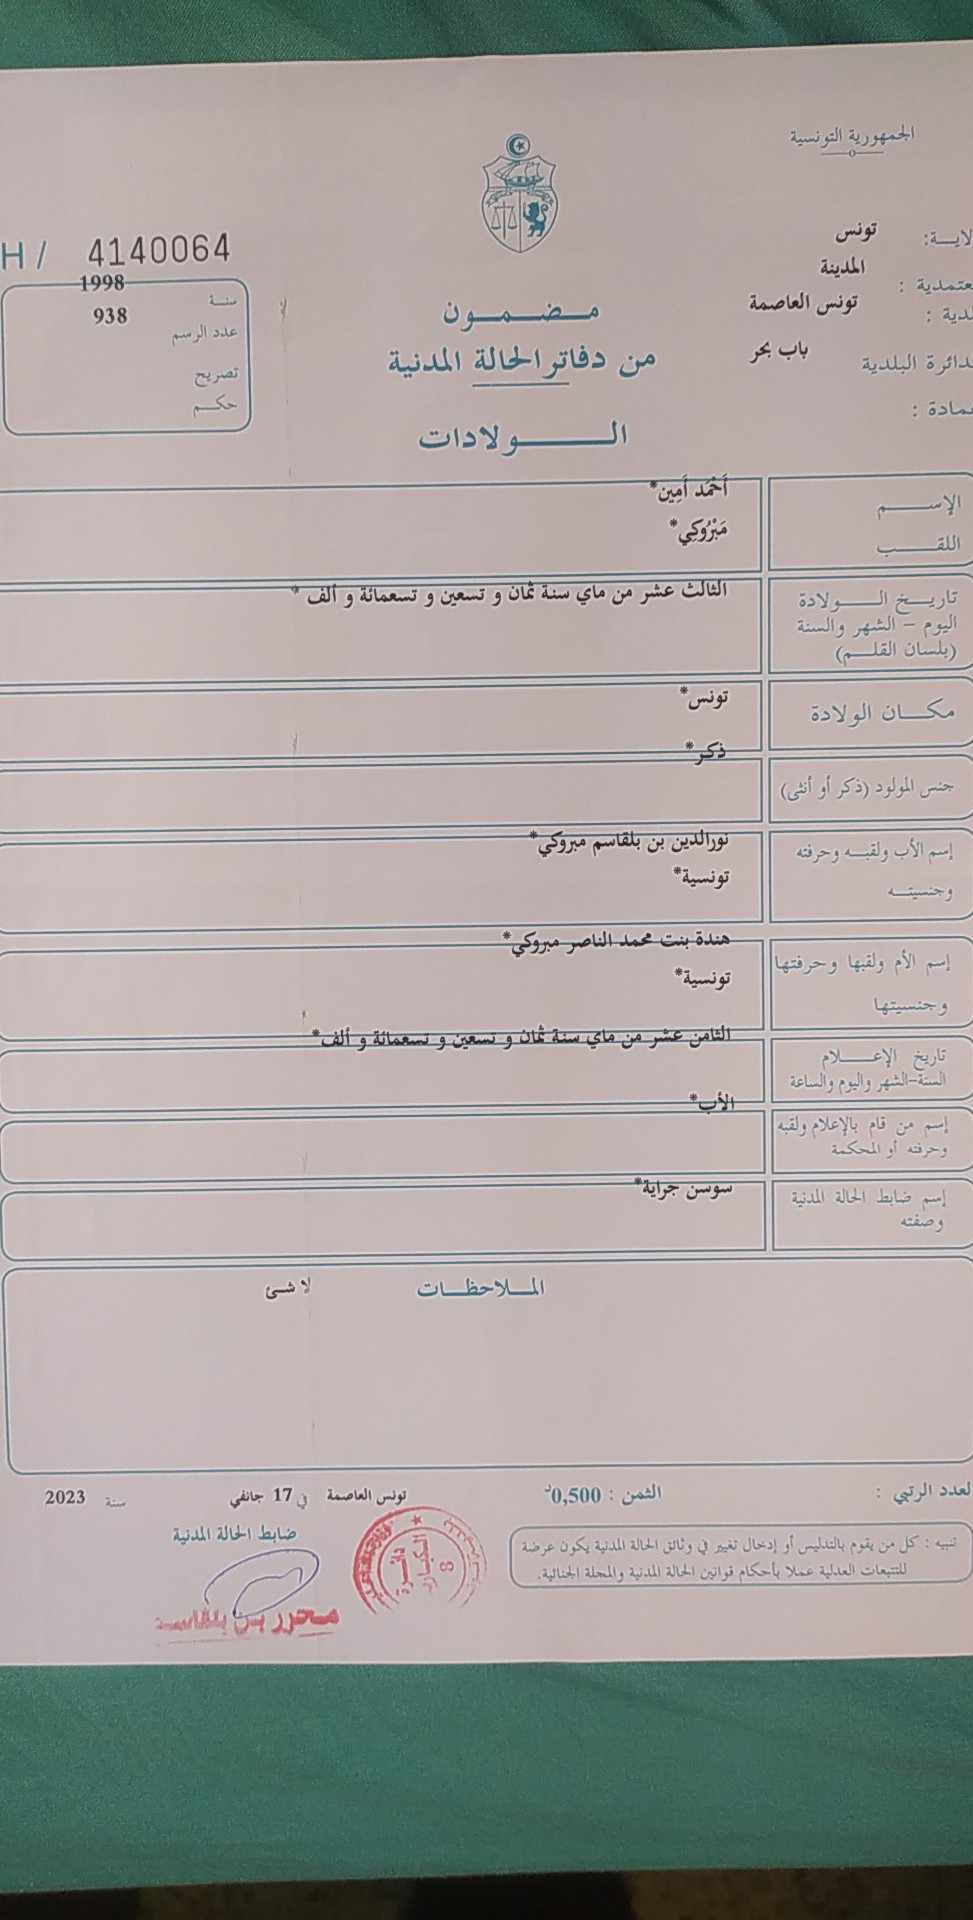 الجمهورية التونسية
لايـــة: تونس
عتمدية : المدينة
لدية : تونس العاصمة
دائرة البلدية باب بحر
مادة :
H / 4140064
سنة 1998
عدد الرسم 938
تصريح
حكم
مضمون
من دفاتر الحالة المدنية
الولادات
الإسم أَحْمَد أَمِين*
اللقب مَبْرُوكِي*
تاريخ الولادة الثالث عشر من ماي سنة ثمان و تسعين و تسعمائة و ألف *
اليوم – الشهر والسنة
(بلسان القلم)
مكان الولادة تونس*
جنس المولود (ذكر أو أنثى) ذكر*
إسم الأب ولقبه وحرفته نورالدين بن بلقاسم مبروكي*
وجنسيته تونسية*
إسم الأم ولقبها وحرفتها هندة بنت محمد الناصر مبروكي*
وجنسيتها تونسية*
تاريخ الإعلام الثامن عشر من ماي سنة ثمان و تسعين و تسعمائة و ألف*
السنة-الشهر واليوم والساعة
إسم من قام بالإعلام ولقبه الأب*
وحرفته أو المحكمة
إسم ضابط الحالة المدنية سوسن جراية*
وصفته
الملاحظات لا شئ
لعدد الرتبي :
الثمن : 0,500د
تونس العاصمة في 17 جانفي سنة 2023
تنبيه : كل من يقوم بالتدليس أو إدخال تغيير في وثائق الحالة المدنية يكون عرضة
للتتبعات العدلية عملا بأحكام قوانين الحالة المدنية والمجلة الجنائية.
ضابط الحالة المدنية
دائرة
8
محرز بن بلقاسم